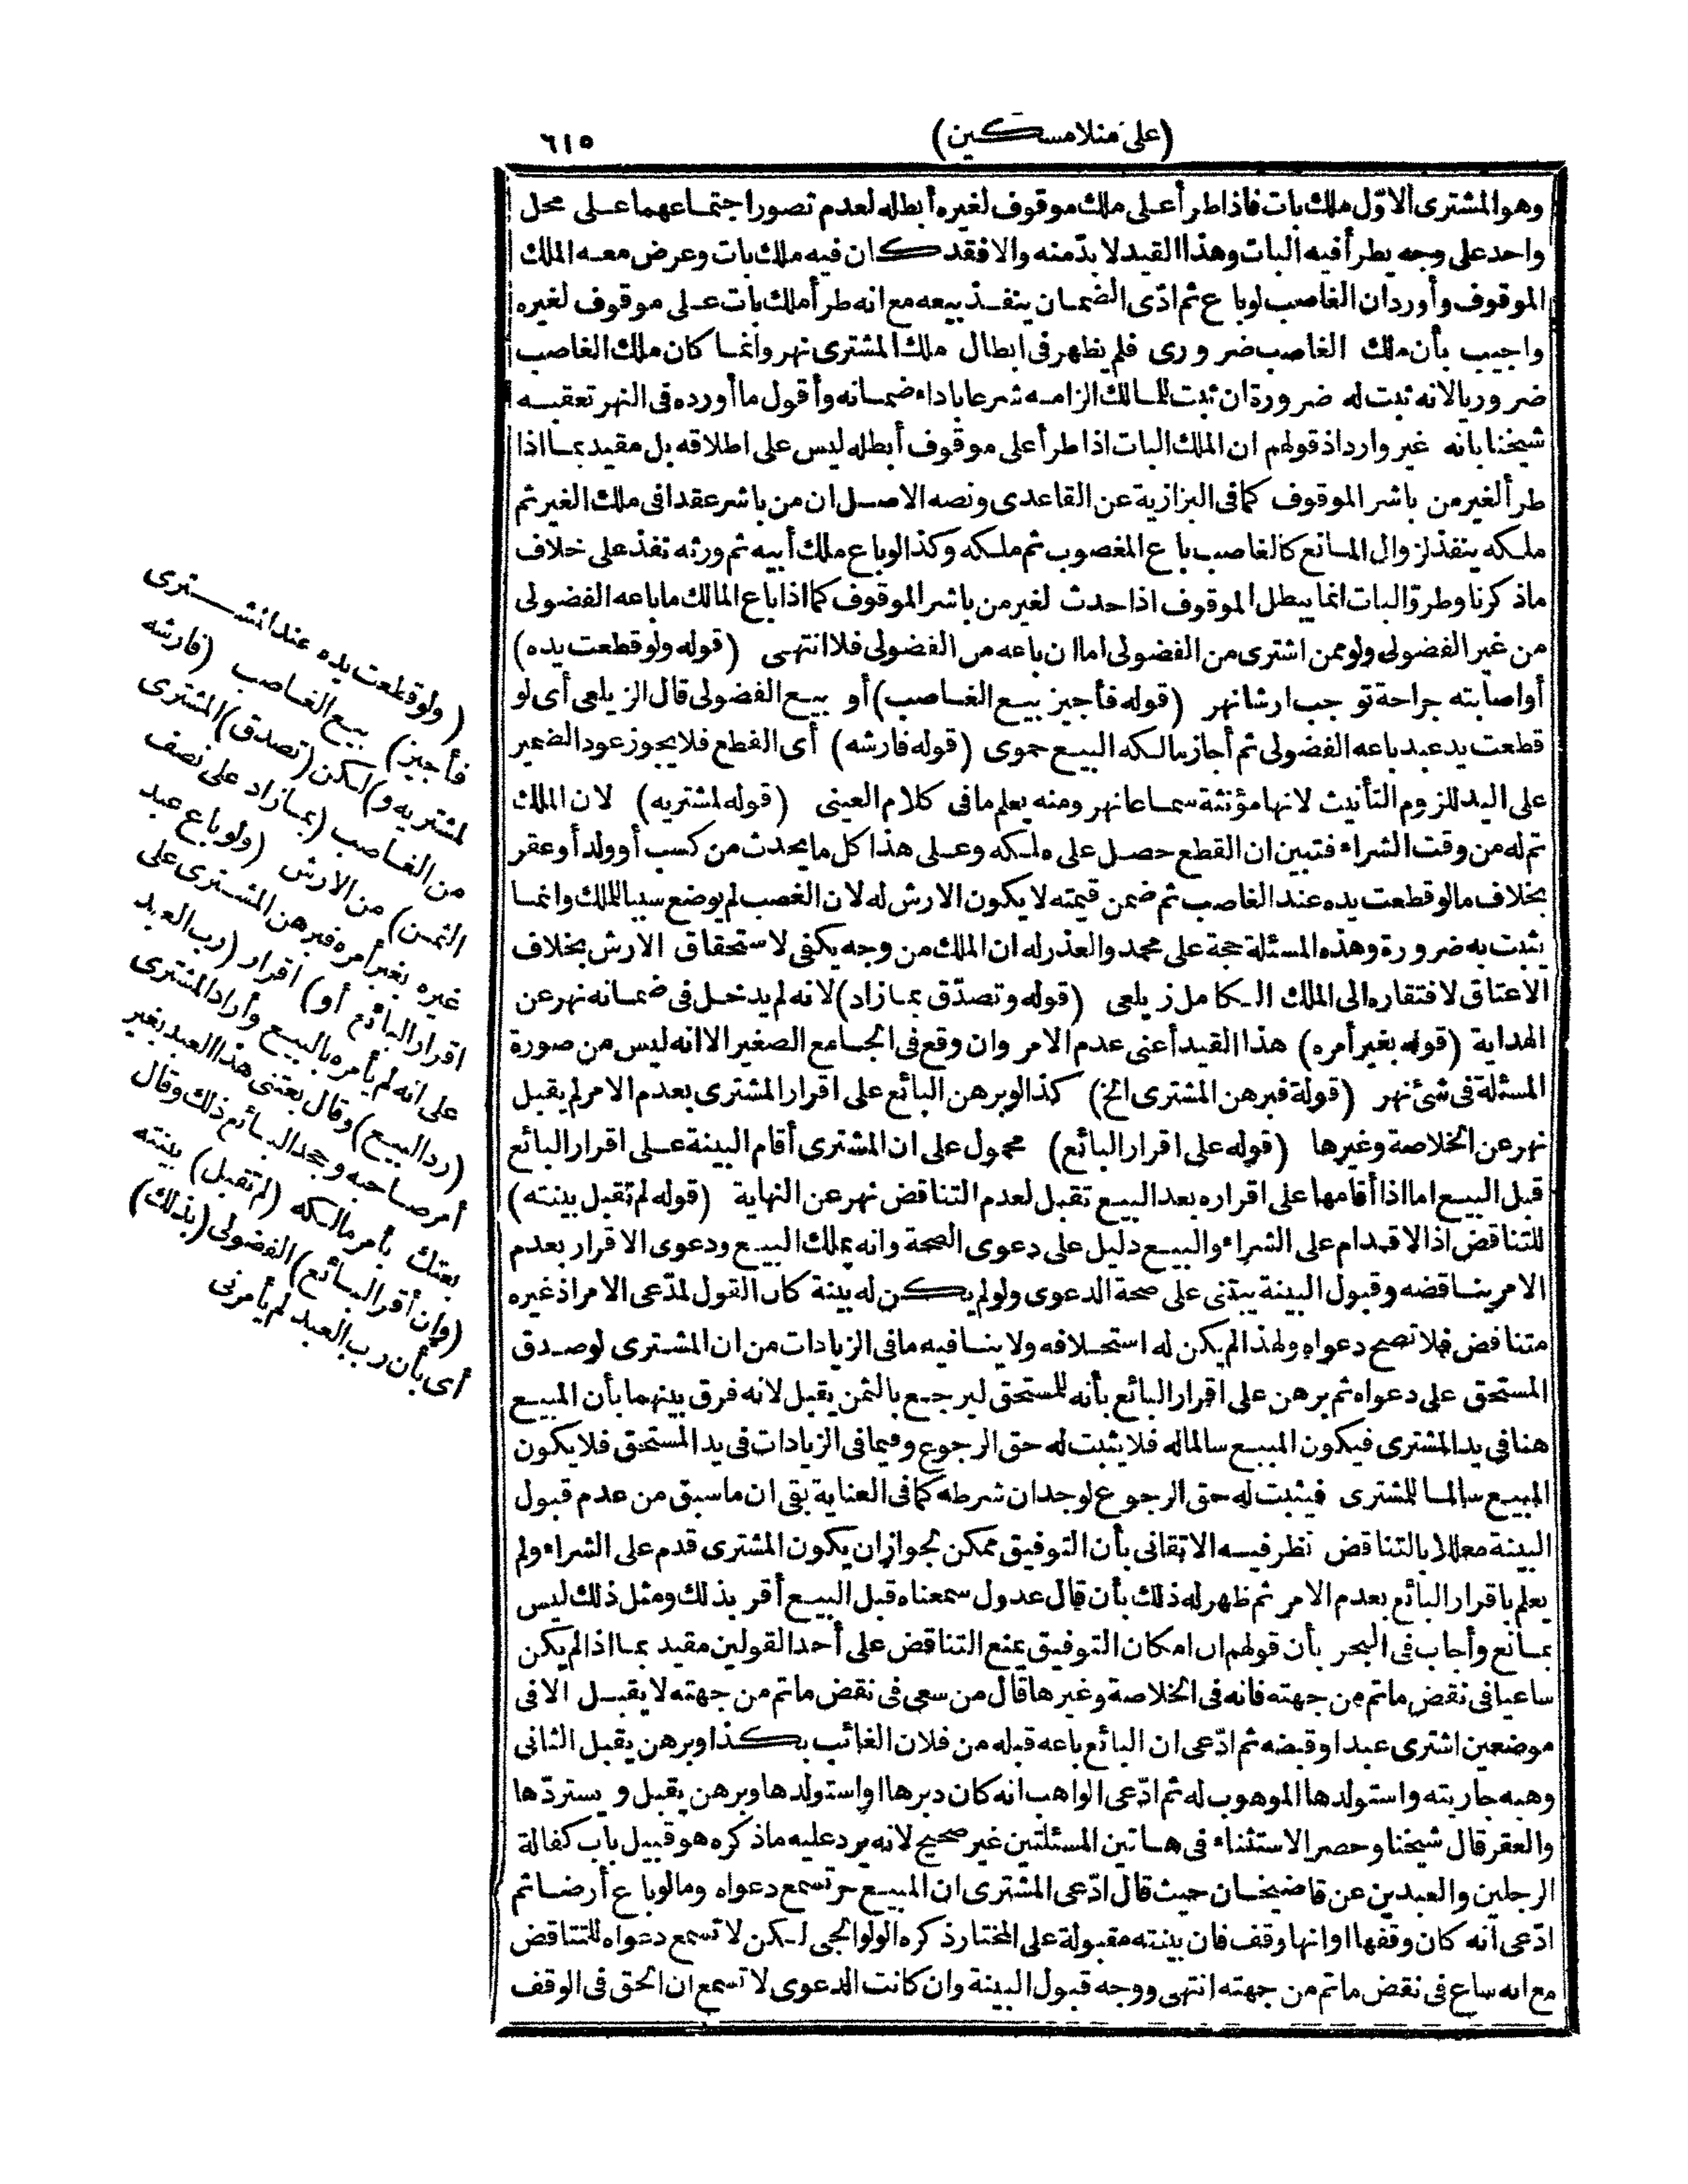 (على منلا مسكين) ٦١٥
وهو المشترى الاوّل ملك بات فاذا طرأ على ملك موقوف لغيره أبطله لعدم تصور اجتماعهما على محل
واحد على وجه يطرأ فيه البات وهذا القيد لابدّ منه والا فقد كان فيه ملك بات وعرض معه الملك
الموقوف وأورد ان الغاصب لو باع ثم ادّى الضمان ينفذ بيعه مع انه طرأ ملك بات على موقوف لغيره
واجيب بأن ملك الغاصب ضرورى فلم يظهر فى ابطال ملك المشترى نهر وانما كان ملك الغاصب
ضروريا لانه ثبت له ضرورة ان ثبت للمالك الزامه شرعا باداء ضمانه وأقول ما أورده فى النهر تعقبه
شيخنا بانه غير وارد اذ قولهم ان الملك البات اذا طرأ على موقوف أبطله ليس على اطلاقه بل مقيد بما اذا
طرأ لغير من باشر الموقوف كما فى البزازية عن القاعدى ونصه الاصل ان من باشر عقدا فى ملك الغير ثم
ملكه ينفذ لزوال المانع كالغاصب باع المغصوب ثم ملكه وكذا لو باع ملك أبيه ثم ورثه نفذ على خلاف
ما ذكرنا وطروّ البات انما يبطل الموقوف اذا حدث لغير من باشر الموقوف كما اذا باع المالك ما باعه الفضولى
من غير الفضولى ولو ممن اشترى من الفضولى اما ان باعه من الفضولى فلا انتهى (قوله ولو قطعت يده)
أو اصابته جراحة توجب ارشا نهر (قوله فأجيز بيع الغاصب) أو بيع الفضولى قال الزيلعى أى لو
قطعت يد عبد باعه الفضولى ثم أجاز مالكه البيع حموى (قوله فارشه) أى القطع فلا يجوز عود الضمير
على اليد للزوم التأنيث لانها مؤنثة سماعا نهر ومنه يعلم ما فى كلام العينى (قوله لمشتريه) لان الملك
تم له من وقت الشراء فتبين ان القطع حصل على ملكه وعلى هذا كل ما يحدث من كسب أو ولد أو عقر
بخلاف ما لو قطعت يده عند الغاصب ثم ضمن قيمته لا يكون الارش له لان الغصب لم يوضع سببا للملك وانما
يثبت به ضرورة وهذه المسئلة حجة على محمد والعذر له ان الملك من وجه يكفى لاستحقاق الارش بخلاف
الاعتاق لافتقاره الى الملك الكامل زيلعى (قوله وتصدّق بما زاد) لانه لم يدخل فى ضمانه نهر عن
الهداية (قوله بغير أمره) هذا القيد أعنى عدم الامر وان وقع فى الجامع الصغير الا انه ليس من صورة
المسئلة فى شئ نهر (قوله فبرهن المشترى الخ) كذا لو برهن البائع على اقرار المشترى بعدم الامر لم يقبل
نهر عن الخلاصة وغيرها (قوله على اقرار البائع) محمول على ان المشترى أقام البينة على اقرار البائع
قبل البيع اما اذا أقامها على اقراره بعد البيع تقبل لعدم التناقض نهر عن النهاية (قوله لم تقبل بينته)
للتناقض اذ الاقدام على الشراء والبيع دليل على دعوى الصحة وانه يملك البيع ودعوى الاقرار بعدم
الامر يناقضه وقبول البينة يبتنى على صحة الدعوى ولو لم يكن له بينة كان القول لمدّعى الامر اذ غيره
متناقض فلا تصح دعواه ولهذا لم يكن له استحلافه ولا ينافيه ما فى الزيادات من ان المشترى لو صدق
المستحق على دعواه ثم برهن على اقرار البائع بأنه للمستحق ليرجع بالثمن يقبل لانه فرق بينهما بأن المبيع
هنا فى يد المشترى فيكون المبيع سالما له فلا يثبت له حق الرجوع وفيما فى الزيادات فى يد المستحق فلا يكون
المبيع سالما للمشترى فيثبت له حق الرجوع لوجدان شرطه كما فى العناية بقى ان ما سبق من عدم قبول
البينة معللا بالتناقض نظر فيه الاتقانى بأن التوفيق ممكن لجواز ان يكون المشترى قدم على الشراء ولم
يعلم باقرار البائع بعدم الامر ثم ظهر له ذلك بأن قال عدول سمعناه قبل البيع أقر بذلك ومثل ذلك ليس
بمانع وأجاب فى البحر بأن قولهم ان امكان التوفيق يمنع التناقض على أحد القولين مقيد بما اذا لم يكن
ساعيا فى نقض ما تم من جهته فانه فى الخلاصة وغيرها قال من سعى فى نقض ما تم من جهته لا يقبل الا فى
موضعين اشترى عبدا وقبضه ثم ادّعى ان البائع باعه قبله من فلان الغائب بكذا وبرهن يقبل الثانى
وهبه جاريته واستولدها الموهوب له ثم ادّعى الواهب انه كان دبرها او استولدها وبرهن يقبل ويستردّها
والعقر قال شيخنا وحصر الاستثناء فى هاتين المسئلتين غير صحيح لانه يرد عليه ما ذكره هو قبيل باب كفالة
الرجلين والعبدين عن قاضيخان حيث قال ادّعى المشترى ان المبيع حر تسمع دعواه وما لو باع أرضا ثم
ادّعى انه كان وقفها او انها وقف فان بينته مقبولة على المختار ذكره الولوالجى لكن لا تسمع دعواه للتناقض
مع انه ساع فى نقض ما تم من جهته انتهى ووجه قبول البينة وان كانت الدعوى لا تسمع ان الحق فى الوقف
(ولو قطعت يده عند المشترى
فأجيز) بيع الغاصب (فارشه
لمشتريه و) لكن (تصدق) المشترى
من الغاصب (بما زاد على نصف
الثمن) من الارش (ولو باع عبد
غيره بغير أمره فبرهن المشترى على
اقرار البائع أو) اقرار (رب العبد
على انه لم يأمره بالبيع وأراد المشترى
(رد البيع) وقال بعتنى هذا العبد بغير
أمر صاحبه وجحد البائع ذلك وقال
بعتك بأمر مالكه (لم تقبل) بينته
(وان أقر البائع) الفضولى (بذلك)
أى بأن رب العبد لم يأمرنى